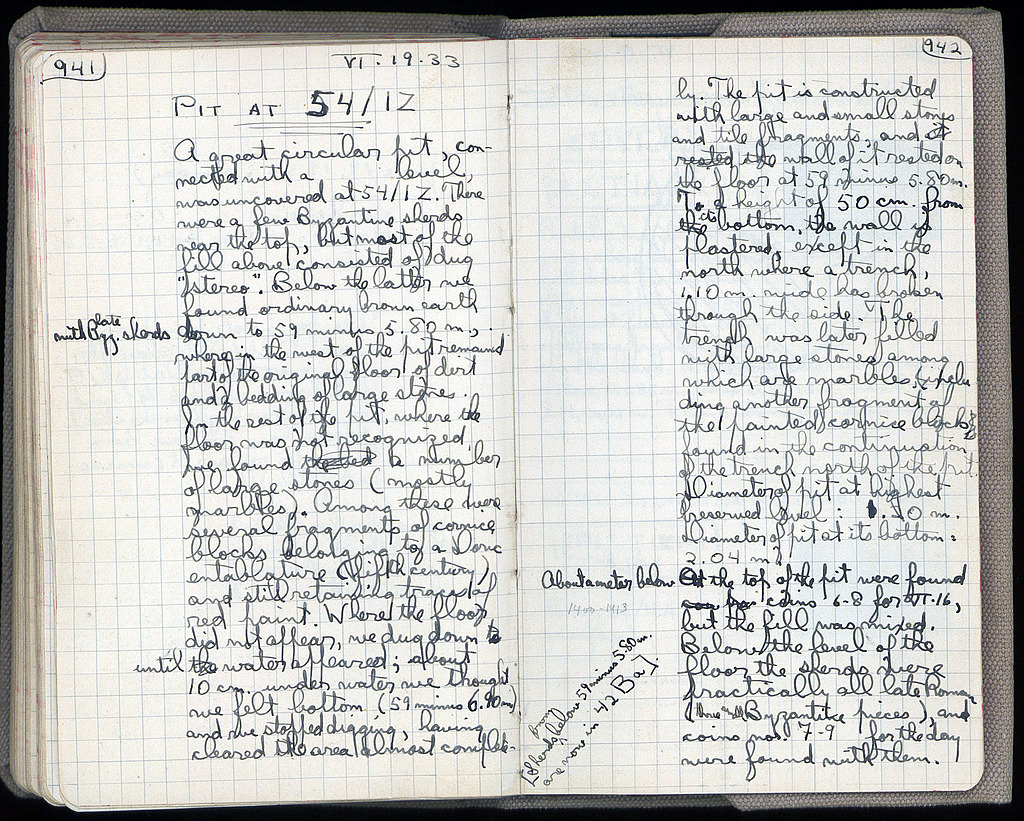 941
VI.19.33
PIT AT 54/IZ
A great circular pit, con-
nected with a level,
was uncovered at 54/IZ. There
were a few Byzantine sherds
near the top, but most of the
fill above consisted of dug
"stereo". Below the latter we
found ordinary brown earth
with late Byz. sherds down to 59 minus 5.80 m.,
where in the west of the pit remained
part of the original floor of dirt
and a bedding of large stones.
In the rest of the pit, where the
floor was not recognized,
we found the bed a number
of large stones (mostly
marbles). Among these were
several fragments of cornice
blocks belonging to a Doric
entablature (fifth century)
and still retaining traces of
red paint. Where the floor
did not appear, we dug down
until the water appeared; about
10 cm. under water we thought
we felt bottom (59 minus 6.90 m)
and we stopped digging, having
cleared the area almost complete-
942
ly. The pit is constructed
with large and small stones
and tile fragments, and it
rested the wall of it rested on
the floor at 59 minus 5.80 m.
To a height of 50 cm. from
the its bottom, the wall is
plastered, except in the
north where a trench,
1.10 m. wide has broken
through the side. The
trench was later filled
with large stones among
which are marbles, inclu-
ding another fragment of
the painted cornice blocks,
found in the continuation
of the trench north of the pit.
Diameter of pit at highest
preserved level: m.
Diameter of pit at its bottom:
2.04 m.
About a meter below the top of the pit were found
coins 6-8 for VI-16,
but the fill was mixed.
Below the level of the
floor the sherds were
practically all late Roman
(three small Byzantine pieces), and
coins nos. 7-9 for the day
were found with them.
[Sherds from below 59 minus 5.80 m.
are now in 42 Ba]